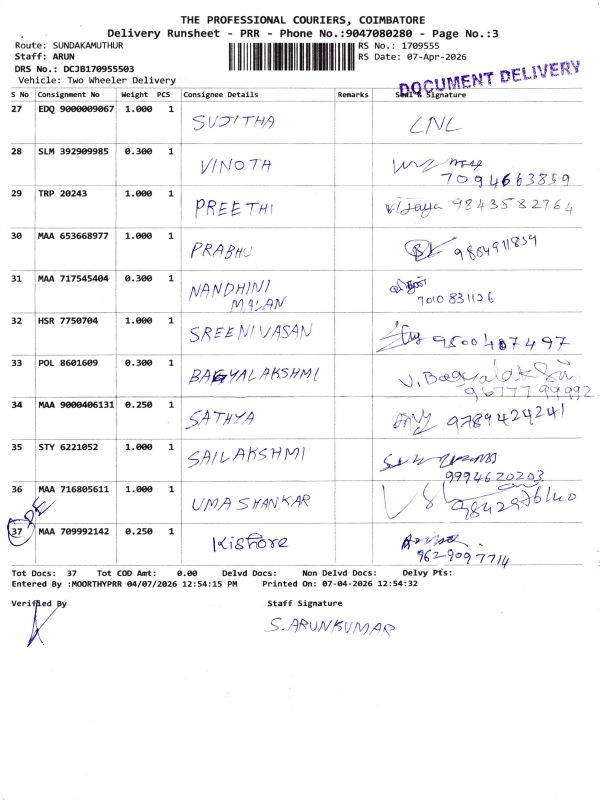 THE PROFESSIONAL COURIERS, COIMBATORE
Delivery Runsheet - PRR - Phone No.:9047080280 - Page No.:3
Route: SUNDAKAMUTHUR
RS No.: 1709555
Staff: ARUN
RS Date: 07-Apr-2026
DRS No.: DCJB170955503
Vehicle: Two Wheeler Delivery
DOCUMENT DELIVERY
S No Consignment No Weight PCS Consignee Details Remarks Seal & Signature
27 EDQ 9000009067 1.000 1 SUJITHA LNL
28 SLM 392909985 0.300 1 VINOTH 7094663859
29 TRP 20243 1.000 1 PREETHI vijaya 9843582764
30 MAA 653668977 1.000 1 PRABHU
31 MAA 717545404 0.300 1 NANDHINI
MALAN 7010831126
32 HSR 7750704 1.000 1 SREENIVASAN
33 POL 8601609 0.300 1 BAGYALAKSHMI V. Bagyalakshmi
9677799992
34 MAA 9000406131 0.250 1 SATHYA 9789424241
35 STY 6221052 1.000 1 SAILAKSHMI
9994620203
36 MAA 716805611 1.000 1 UMA SHANKAR
37 MAA 709992142 0.250 1 Kishore
962-9097714
Tot Docs: 37 Tot COD Amt: 0.00 Delvd Docs: Non Delvd Docs: Delvy Pts:
Entered By :MOORTHYPRR 04/07/2026 12:54:15 PM Printed On: 07-04-2026 12:54:32
Verified By Staff Signature
S. ARUNKUMAR